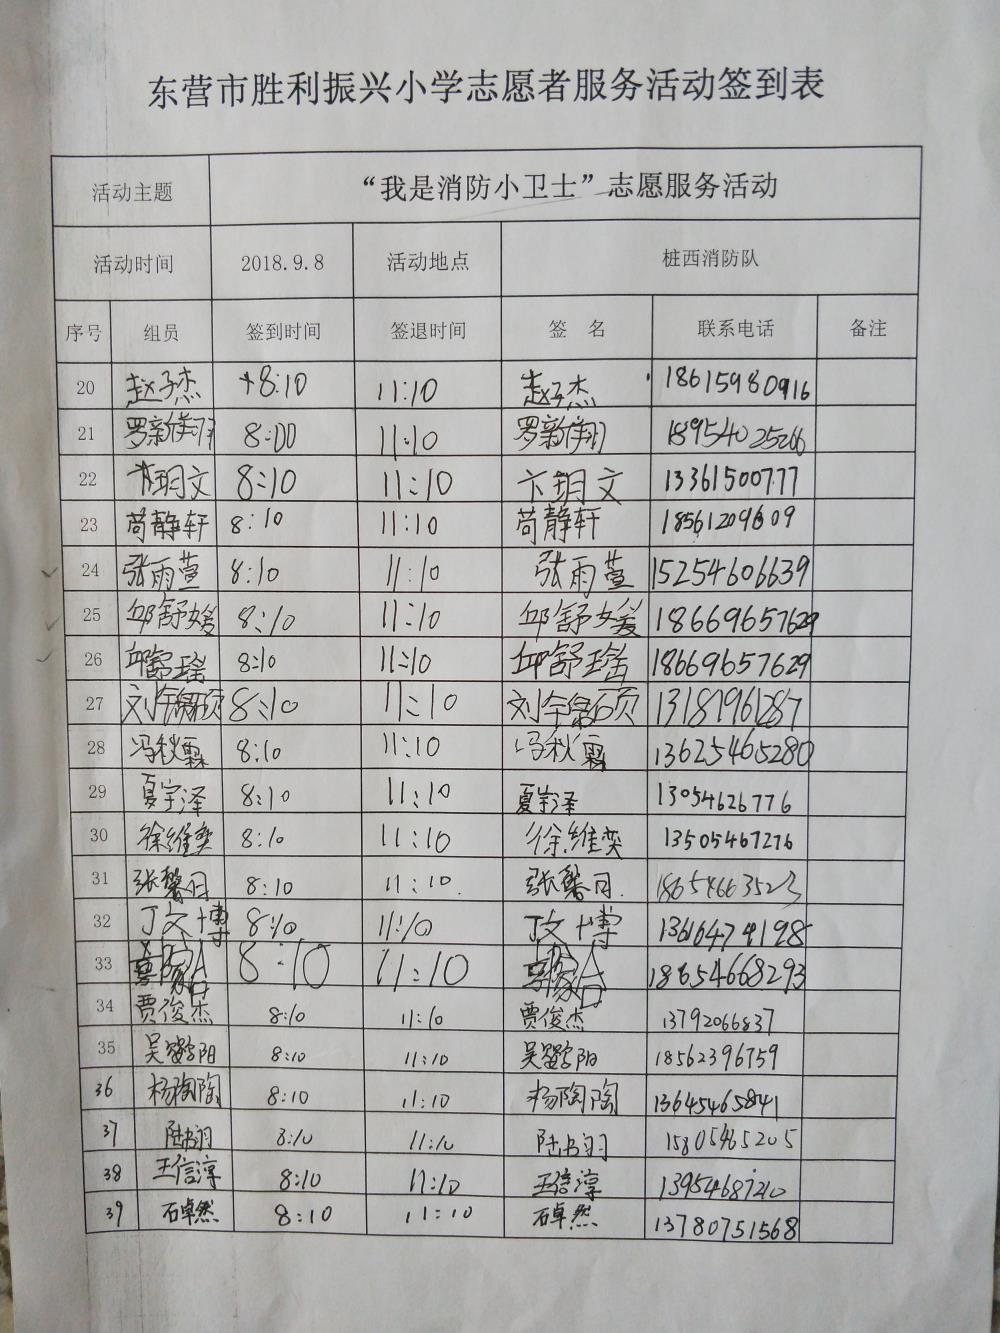 东营市胜利振兴小学志愿者服务活动签到表
活动主题 “我是消防小卫士”志愿服务活动
活动时间 2018.9.8 活动地点 桩西消防队
序号 组员 签到时间 签退时间 签 名 联系电话 备注
20 赵子杰 8:10 11:10 赵子杰 18615980916
21 罗新翔 8:00 11:10 罗新翔 18954025266
22 卞玥文 8:10 11:10 卞玥文 13361500777
23 苟静轩 8:10 11:10 苟静轩 18561209609
24 张雨萱 8:10 11:10 张雨萱 15254606639
25 邱舒媛 8:10 11:10 邱舒媛 18669657629
26 邱舒瑶 8:10 11:10 邱舒瑶 18669657629
27 刘宇硕 8:10 11:10 刘宇硕 13181961287
28 冯秋霖 8:10 11:10 冯秋霖 13625465280
29 夏宇泽 8:10 11:10 夏宇泽 13054626776
30 徐维奕 8:10 11:10 徐维奕 13505467276
31 张馨月 8:10 11:10 张馨月 18654663523
32 丁文博 8:10 11:10 丁文博 13616474198
33 8:10 11:10 18654668293
34 贾俊杰 8:10 11:10 贾俊杰 13792066837
35 8:10 11:10 18562396759
36 杨陶陶 8:10 11:10 杨陶陶 13645465841
37 陆书羽 8:10 11:10 陆书羽 15805465205
38 王信淳 8:10 11:10 王信淳 13954687210
39 石卓然 8:10 11:10 石卓然 13780751568